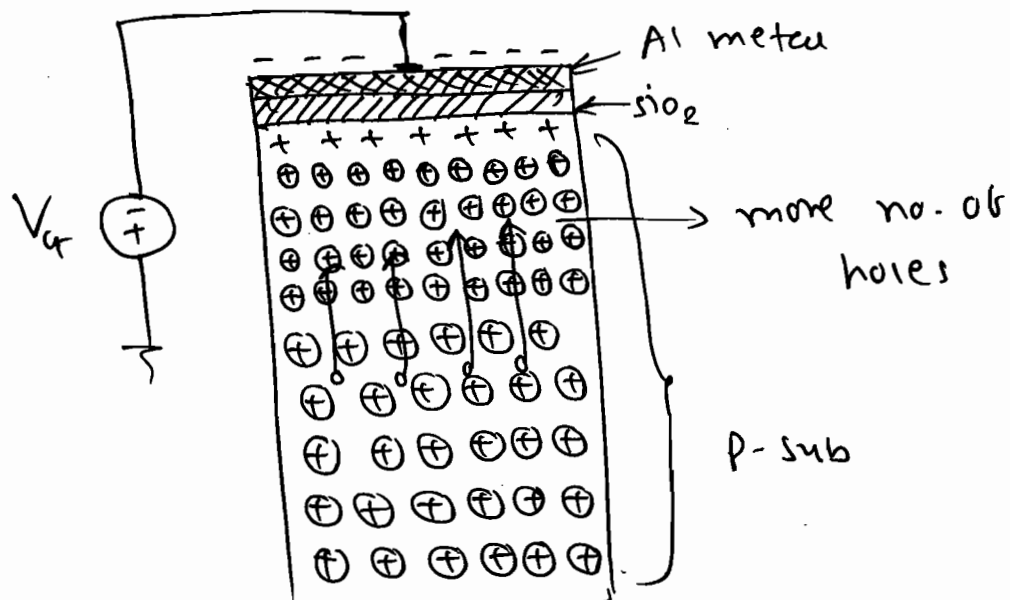 Al metal
SiO2
VG
more no. of
holes
P-sub